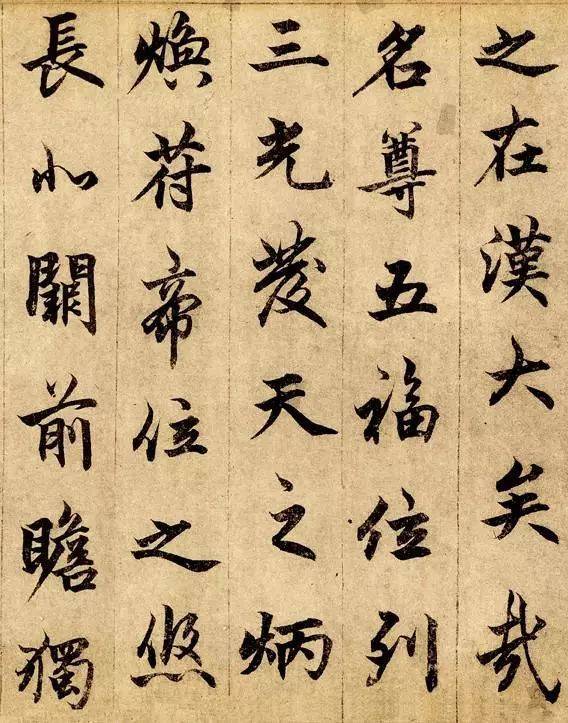 之在漢大矣哉
名尊五福位列
三光發天之炳
煥苻帝位之悠
長北闕前瞻獨